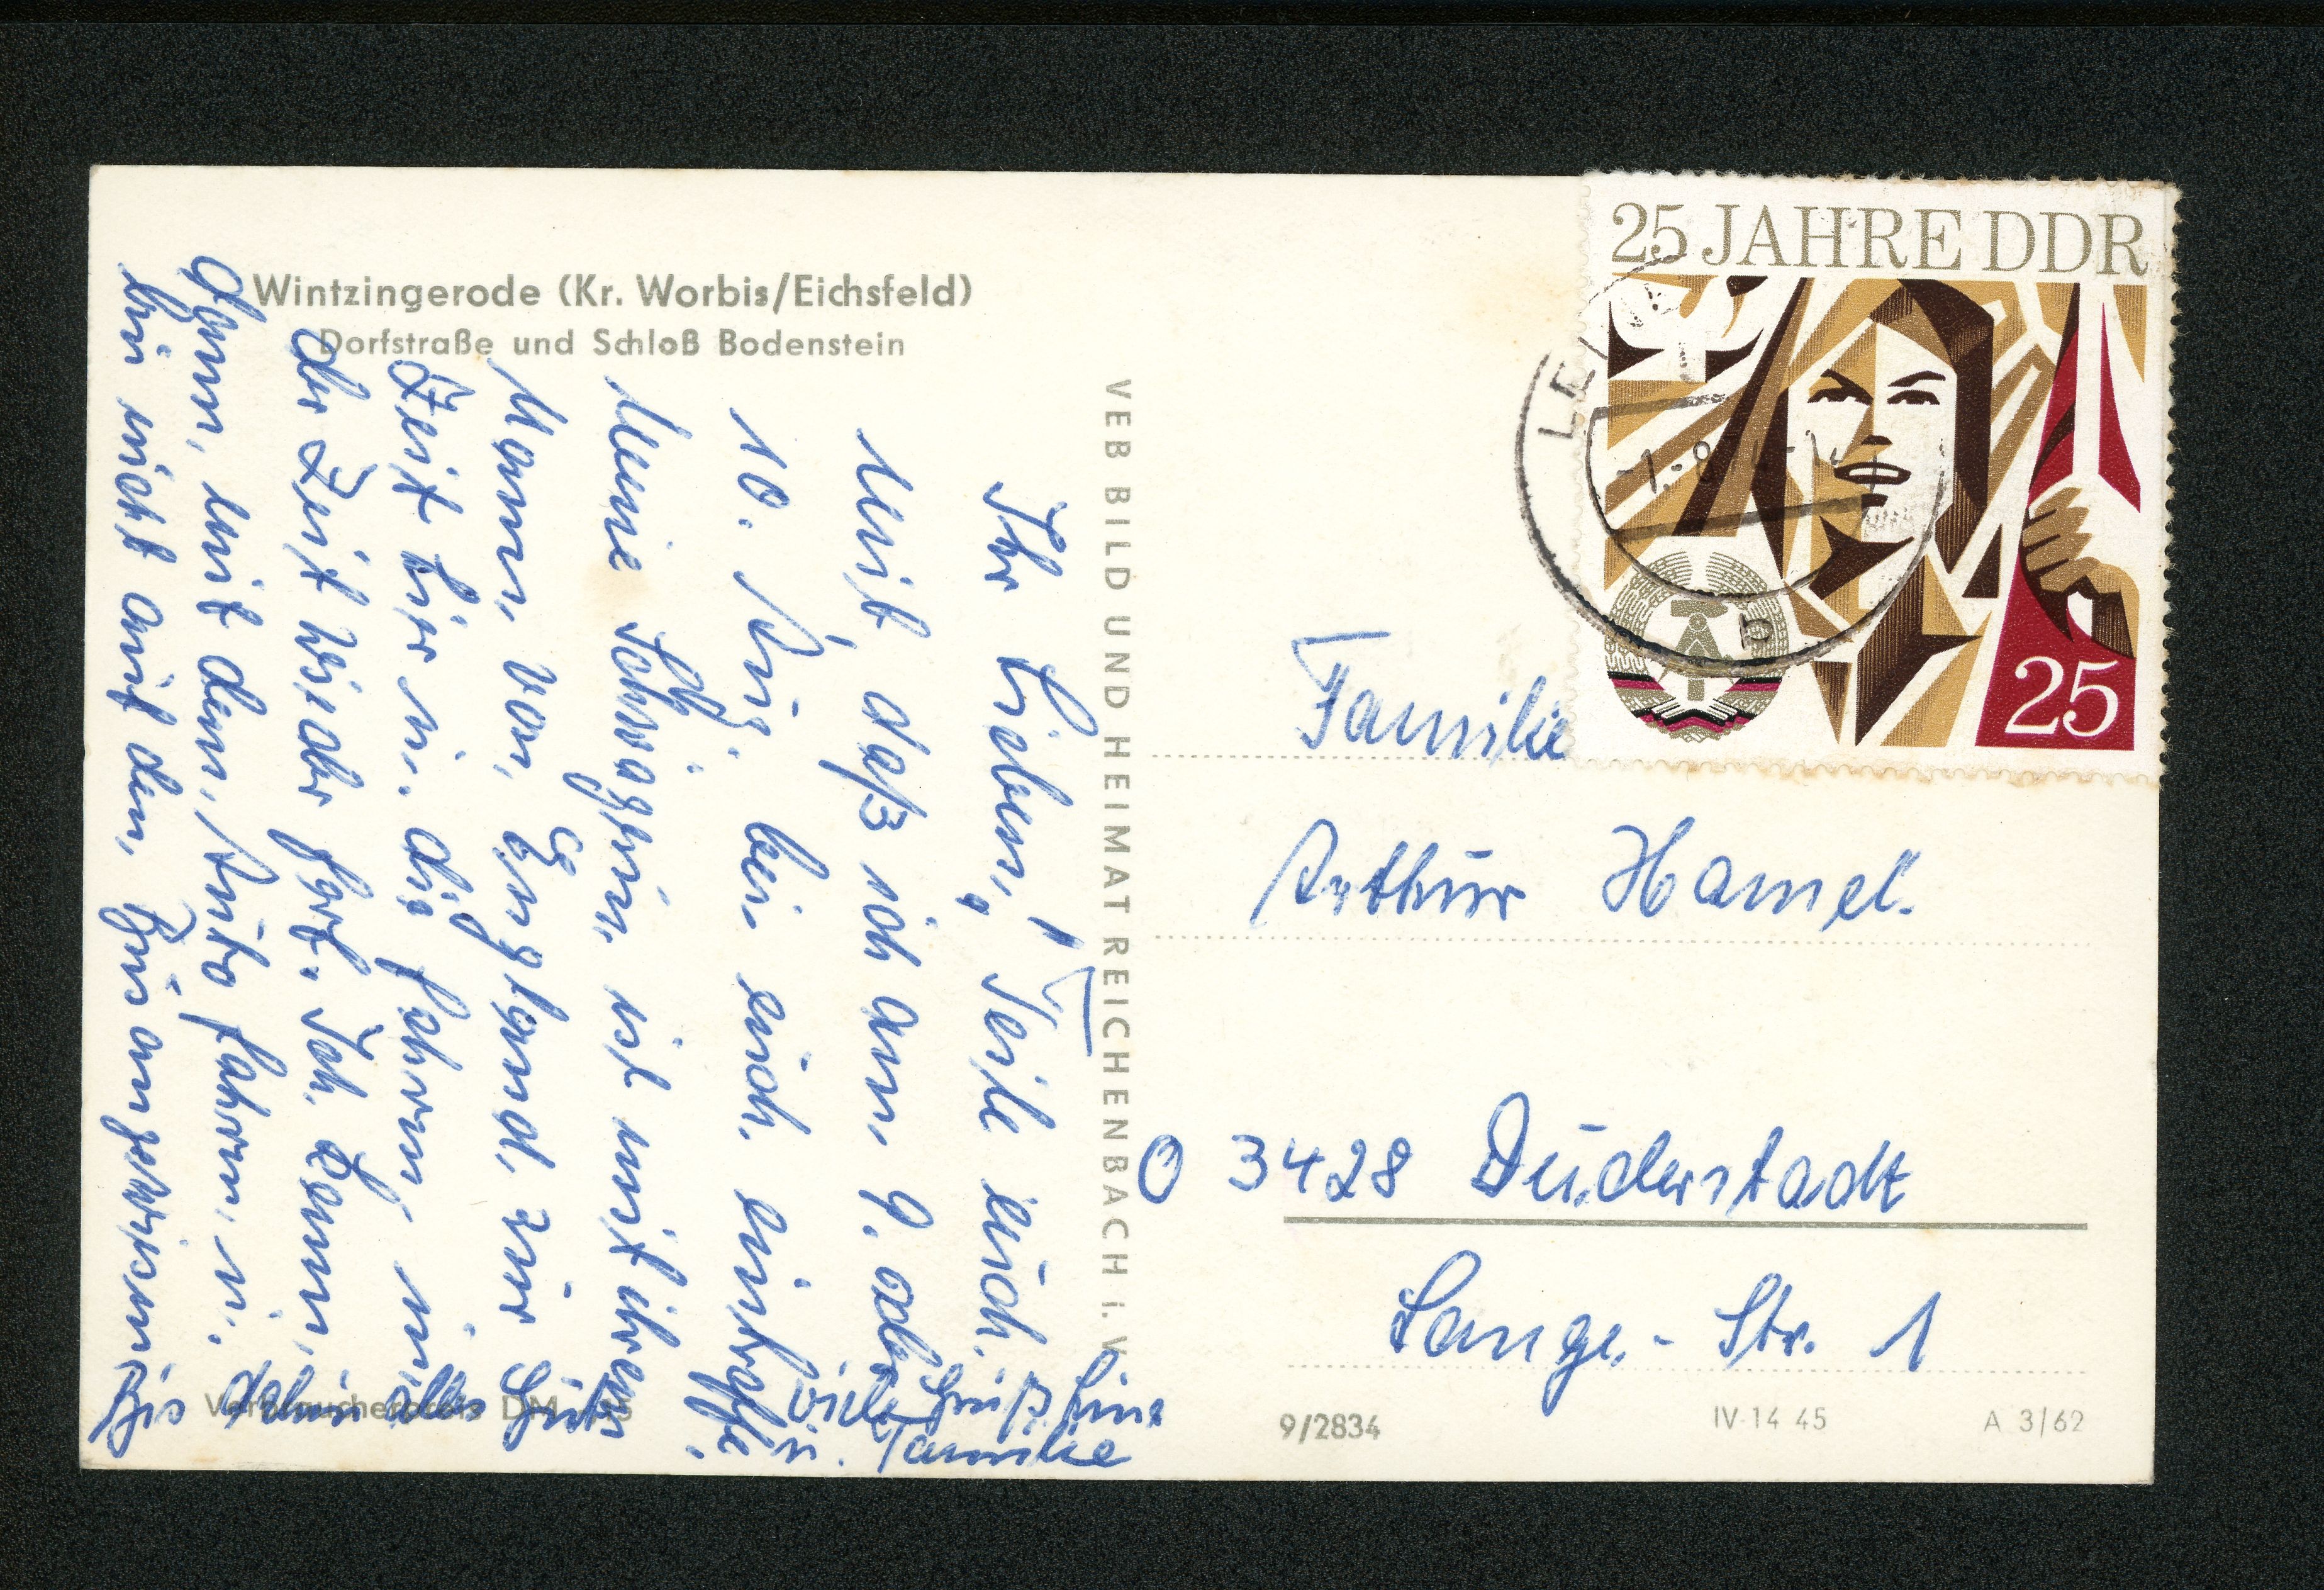 Wintzingerode (Kr. Worbis/Eichsfeld)
Dorfstraße und Schloß Bodenstein
Ihr Lieben, Teile euch
Mit, daß ich am 9. oder
10. Aug. bei euch eintreffe.
Meine Schwägerin ist mit ihrem
Mann von England zur
Zeit hier u. die fahren um
die Zeit wieder fort. Ich kann
dann mit dem Auto fahren u.
bin nicht auf den Bus angewiesen
bis dahin alles Gute
viele Grüße
u. Familie
VEB BILD UND HEIMAT REICHENBACH i. V.
25 JAHRE DDR
25
Familie
Arthur Hamel
O 3428 Duderstadt
Lange-Str. 1
Verbraucherpreis DM
9/2834
IV-14 45
A 3/62